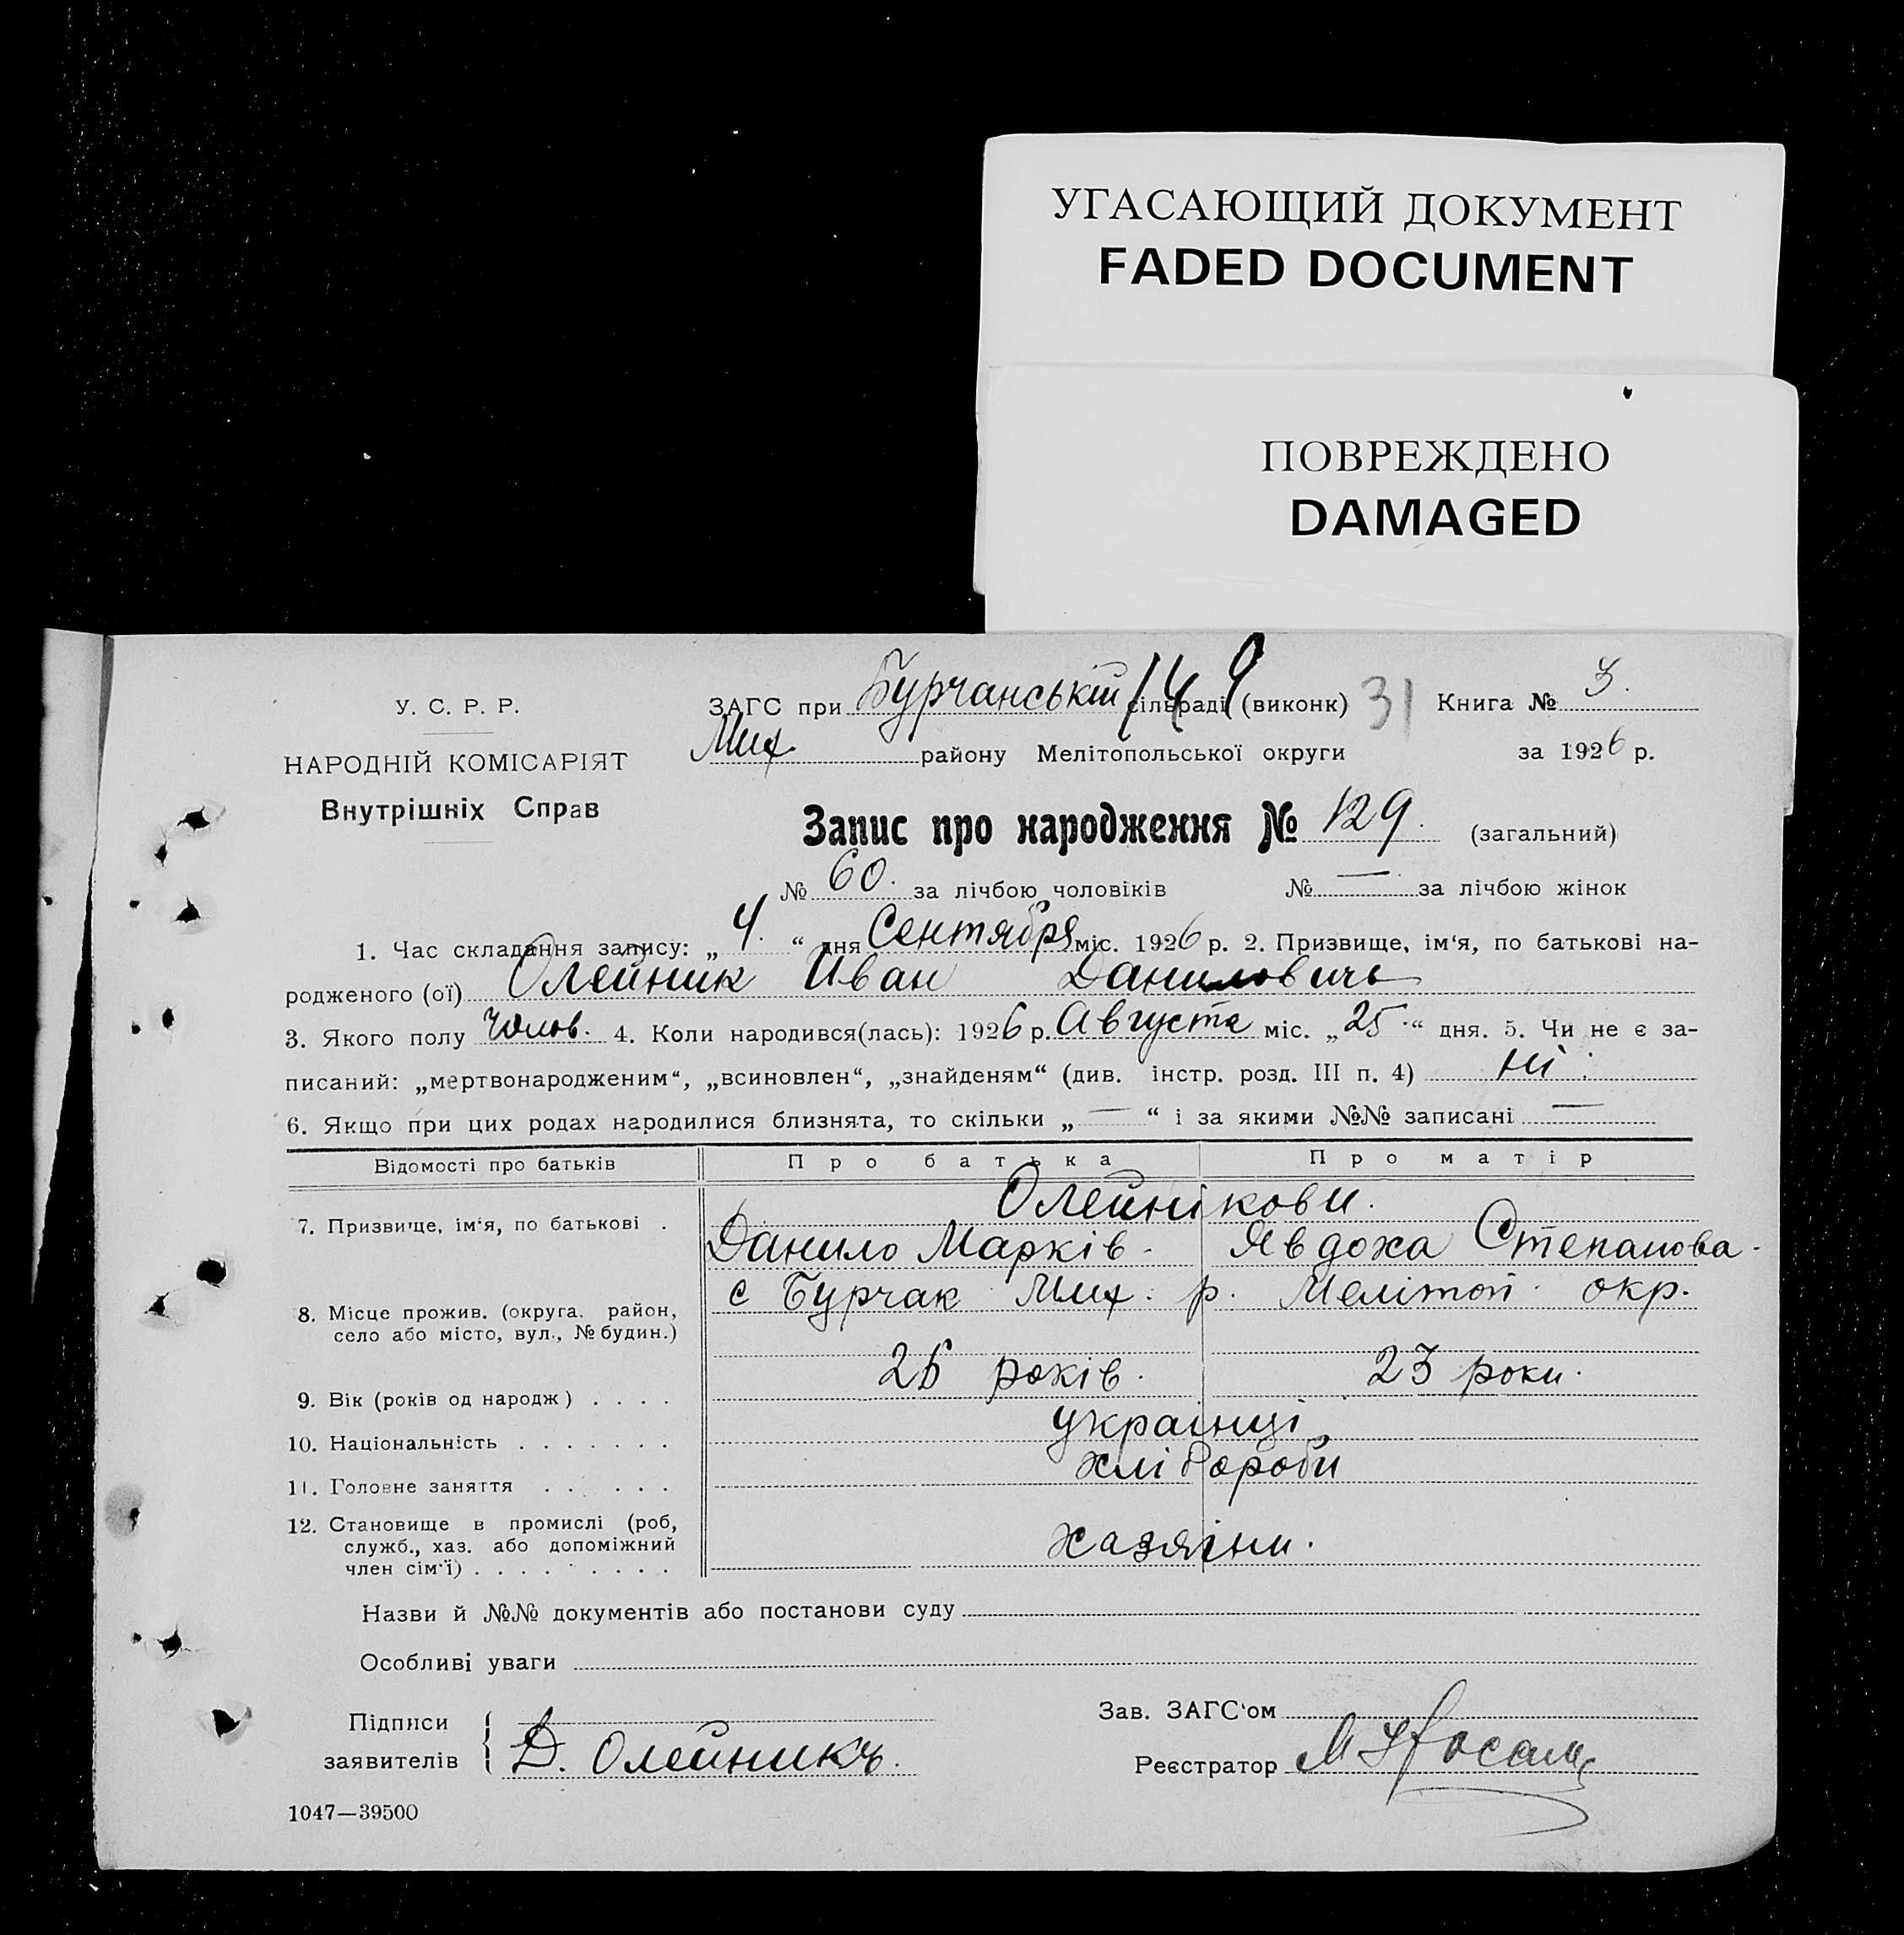 УГАСАЮЩИЙ ДОКУМЕНТ
FADED DOCUMENT
ПОВРЕЖДЕНО
DAMAGED
У. С. Р. Р.
НАРОДНІЙ КОМІСАРІЯТ
Внутрішніх Справ
149
ЗАГС при Бурчанській сільраді (виконк) 31 Книга № 3.
Мих. району Мелітопольської округи за 1926 р.
Запис про народження № 129. (загальний)
№ 60. за лічбою чоловіків № — за лічбою жінок
1. Час складання запису: „4.“ дня Сентября міс. 1926 р. 2. Призвище, ім‘я, по батькові на-
родженого (ої) Олейник Иван Данилович
3. Якого полу чолов. 4. Коли народився(лась): 1926 р. Августа міс. „25“ дня. 5. Чи не є за-
писаний: „мертвонародженим“, „всиновлен“, „знайденям“ (див. інстр. розд. III п. 4) ні.
6. Якщо при цих родах народилися близнята, то скільки „—“ і за якими №№ записані —
Відомості про батьків Про батька Про матір
Олейнікови.
7. Призвище, ім‘я, по батькові .
Данило Марків. Явдоха Степанова.
с Бурчак Мих. р. Меліт. окр.
8. Місце прожив. (округа. район,
село або місто, вул., № будин.)
26 років. 23 роки.
9. Вік (років од народж) . . . .
українці
10. Національність . . . . . . .
хлібороби
11. Головне заняття . . . . . .
12. Становище в промислі (роб,
служб., хаз. або допоміжний
член сім‘ї) . . . . . . . . .
хазяіни.
Назви й №№ документів або постанови суду
Особливі уваги
Підписи
заявителів
Д. Олейникъ.
Зав. ЗАГС‘ом
Реєстратор
1047—39500